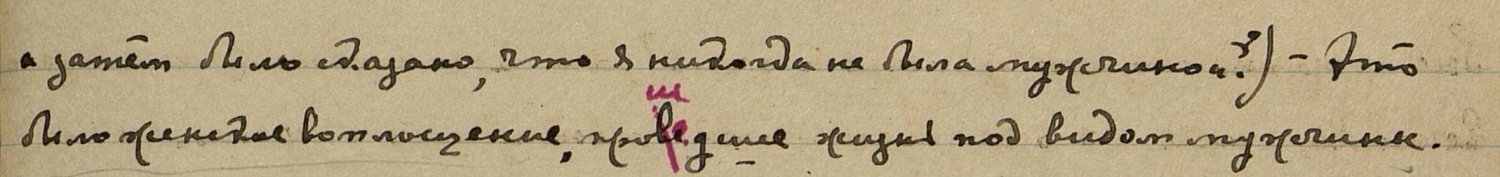 а затем было сказано, что я никогда не была мужчиной?) – Это
было женское воплощение, прошедшее жизнь под видом мужчины.